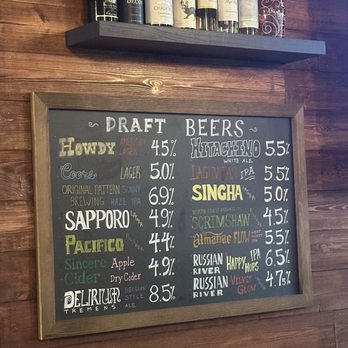 ~ DRAFT BEERS ~
HOWDY 4.5%
Coors LAGER 5.0%
ORIGINAL PATTERN BREWING HAZE IPA 6.9%
SAPPORO 4.9%
PACIFICO 4.4%
Sincere Cider Apple Dry Cider 4.9%
DELIRIUM TREMENS BELGIAN STYLE ALE 8.5%
HITACHINO WHITE ALE 5.5%
IPA 5.5%
SINGHA 5.0%
SCRIMSHAW 4.5%
Almanac FLOW 5.5%
RUSSIAN RIVER HAPPY HOPS IPA 6.5%
RUSSIAN RIVER VELVET GLOW 4.7%